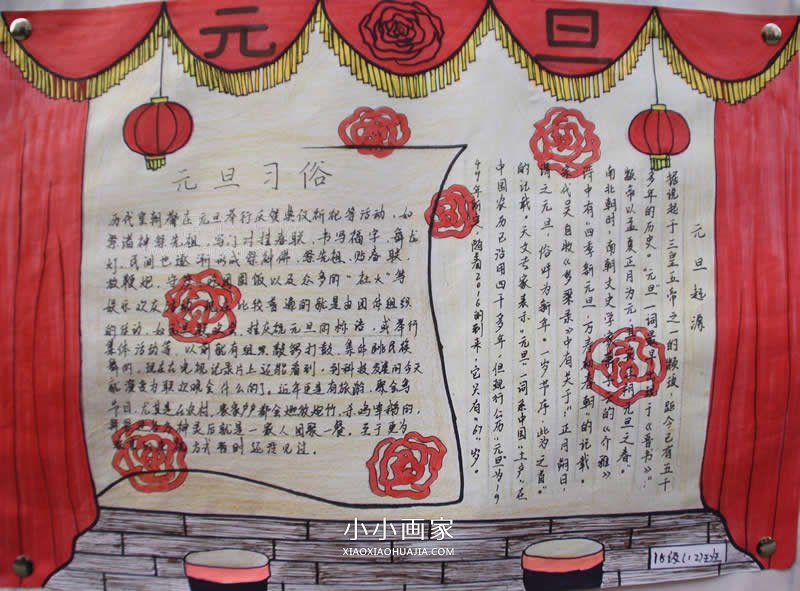 元旦
元旦习俗
历代皇朝都在元旦举行庆贺典仪祈祀等活动,如
祭诸神祭先祖,写门对挂春联,书写福字、舞龙
灯,民间也逐渐形成祭神佛、祭先祖、贴春联、
放鞭炮、守岁、吃团圆饭以及众多的“社火”等
娱乐欢庆活动。比较普遍的就是由团体组织
的活动,如元旦联欢会,挂庆祝元旦的标语,或举行
集体活动等,以前就有组织敲锣打鼓,集体跳民族
舞的,现在在电视记录片上还能看到,到科技发展的今天
就演变为联欢晚会什么的了。近年更是有旅游、聚会等
节日,尤其是在农村,家家户户都会地放炮竹,杀鸡宰鹅的,
拜各方神灵后就是一家人团聚一餐。至于更为
方式暂时还没见过。
元旦起源
据说起于三皇五帝之一的颛顼,距今已有五千
多年的历史。“元旦”一词最早出现于《晋书》:“
颛帝以孟夏正月为元,其实正朔元旦之春。”
南北朝时,南朝文史学家萧子云的《介雅》
诗中有“四季新元旦,万寿初春朝”的记载。
宋代吴自牧《梦粱录》中有关于“正月朔日,
谓之元旦,俗呼为新年。一岁节序,此为之首”
的记载。天文专家表示“元旦”一词系中国“土产”,在
中国农历已沿用四千多年,但现行公历“元旦”为19
49年所定,随着2016的到来,它只有“67”岁。
小小画家
XIAOXIAOHUAJIA.COM